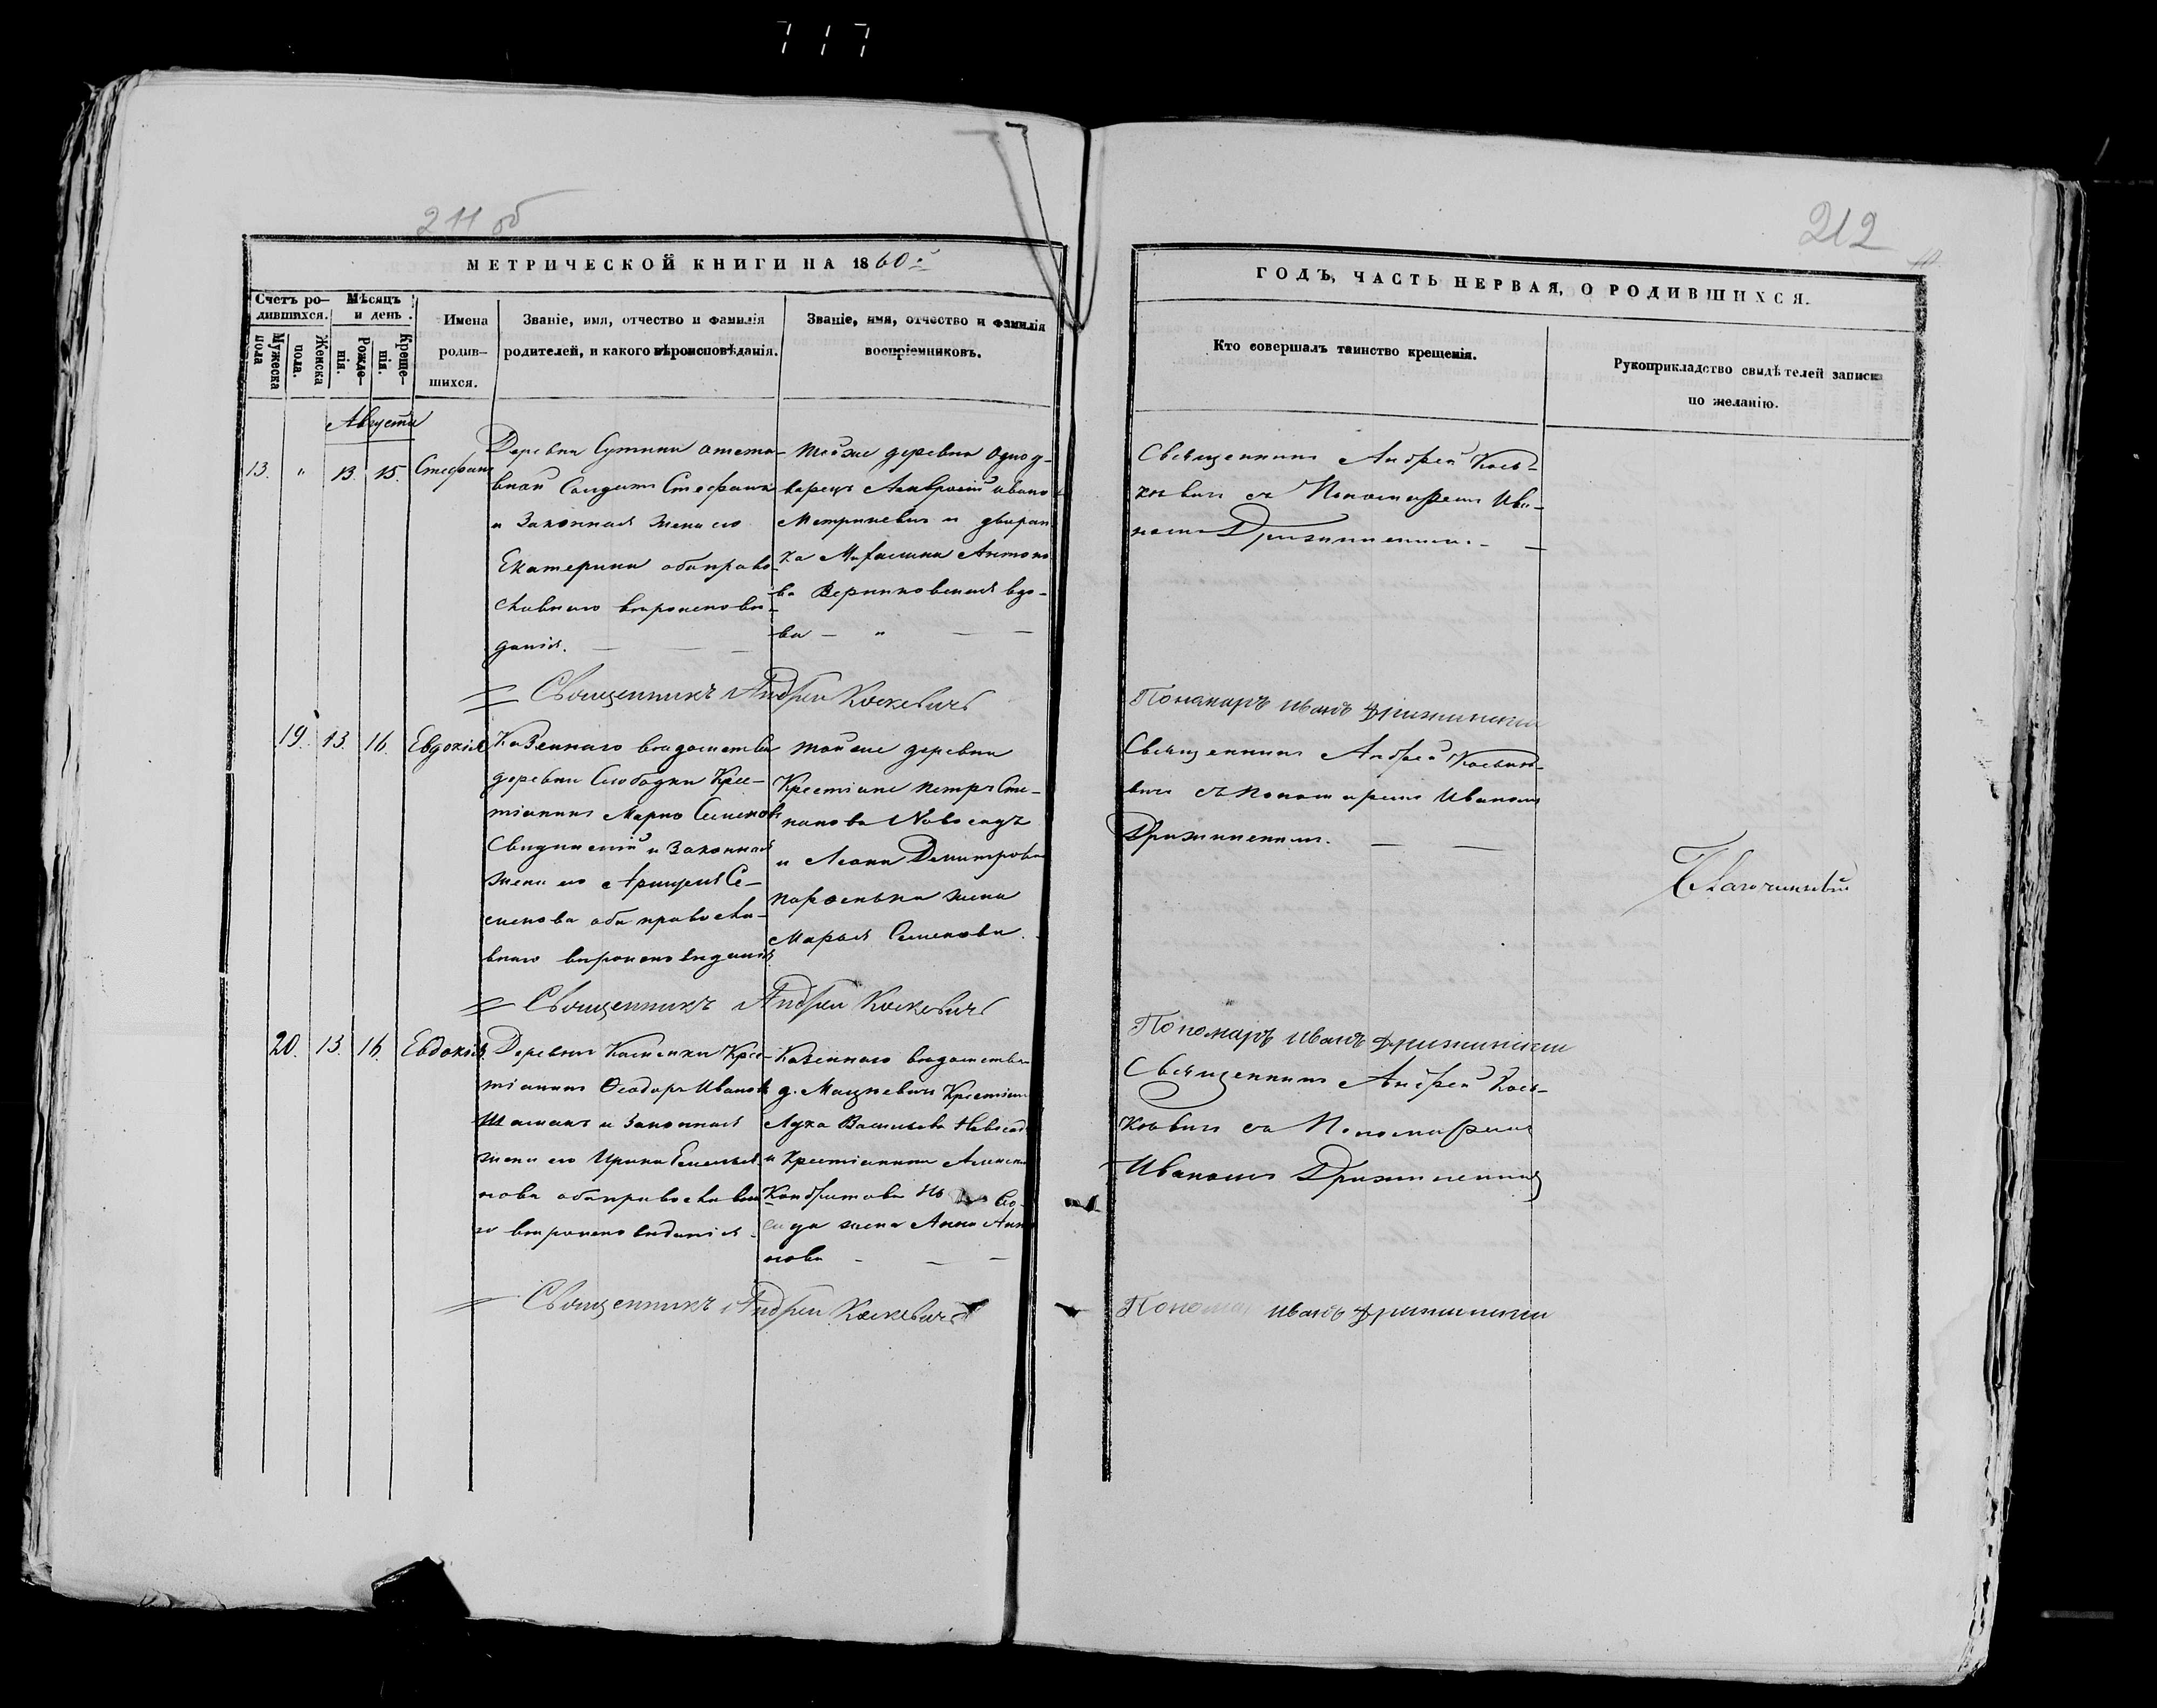 717
211 об
212
МЕТРИЧЕСКОЙ КНИГИ НА 1860й
ГОДЪ, ЧАСТЬ ПЕРВАЯ, О РОДИВШИХСЯ.
Счетъ ро-
дившихся.
Мужеска
пола
Женска
пола.
Мѣсяцъ
и день.
Рожде-
нія.
Креще-
нія.
Имена
родив-
шихся.
Званіе, имя, отчество и фамилія
родителей, и какого вѣроисповѣданія.
Званіе, имя, отчество и фамилія
воспріемниковъ.
Кто совершалъ таинство крещенія.
Рукоприкладство свидѣтелей записи
по желанію.
Августа
13. " 13. 15. Стефанъ
Деревни
вной Солдатъ Стефанъ
и Законная жена его
Екатерина оба право
славнаго вѣроисповѣ-
данія.
тойже деревни Одно д-
ворецъ Амвросій Ивано
и дворян
ка Антоно
ва вдо-
ва — " — —
Священникъ Андрей Кось-
кевичъ съ Пономаремъ Ива-
номъ
= Священникъ Андрей Коскевичъ
Пономарь Иванъ
19. 13. 16. Евдокія
Казеннаго вѣдомства
деревни Слободки Крес-
тіанинъ Марко Семеновъ
и Законная
жена его Се-
менова оба правосла-
внаго вѣроисповѣданія
той же деревни
Крестіане Петръ Сте-
панова Новосадъ
и Димитрова
жена
Марья Семенова.
Священникъ Андрей Коськѣ-
вичъ съ пономаремъ Иваномъ
Благочинный
= Священникъ Андрей Коскевичъ
Пономарь Иванъ
20. 13. 16. Евдокія
Деревни Каменки Крес-
тіанинъ Ѳеодоръ Ивановъ
Шаманъ и Законная
жена его Ирина Емельья-
нова оба православна
го вѣроисповѣданія.
Казеннаго вѣдомства
д. Мацкевичъ Крестіан
Лука Васильева Новосад
и Крестіянина Алексѣя
Кондратова Но во
сада жена Анна Анто
нова - — —
Священникъ Андрей Кось-
кѣвичъ съ Пономаремъ
Иваномъ
= Священникъ Андрей Коскевичъ
Пономарь Иванъ